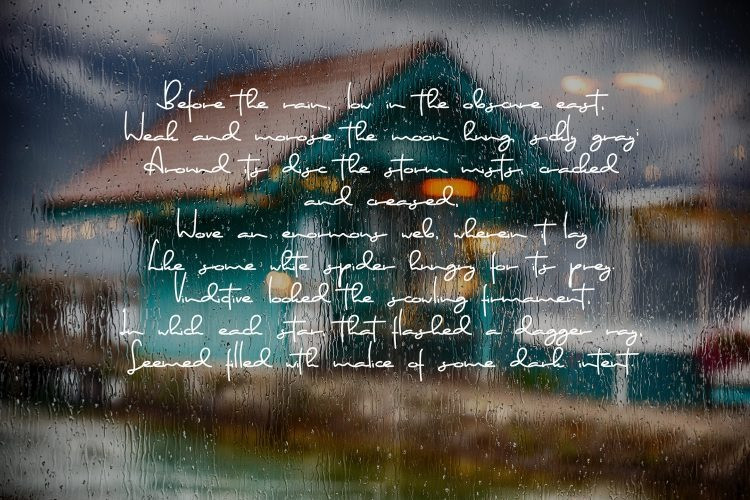 Before the rain, low in the obscure east,
Weak and morose the moon hung, sickly gray;
Around its disc the storm mists, cracked
and creased,
Wove an enormous web, wherein it lay
Like some white spider hungry for its prey.
Vindictive looked the scowling firmament,
In which each star, that flashed a dagger ray,
Seemed filled with malice of some dark intent